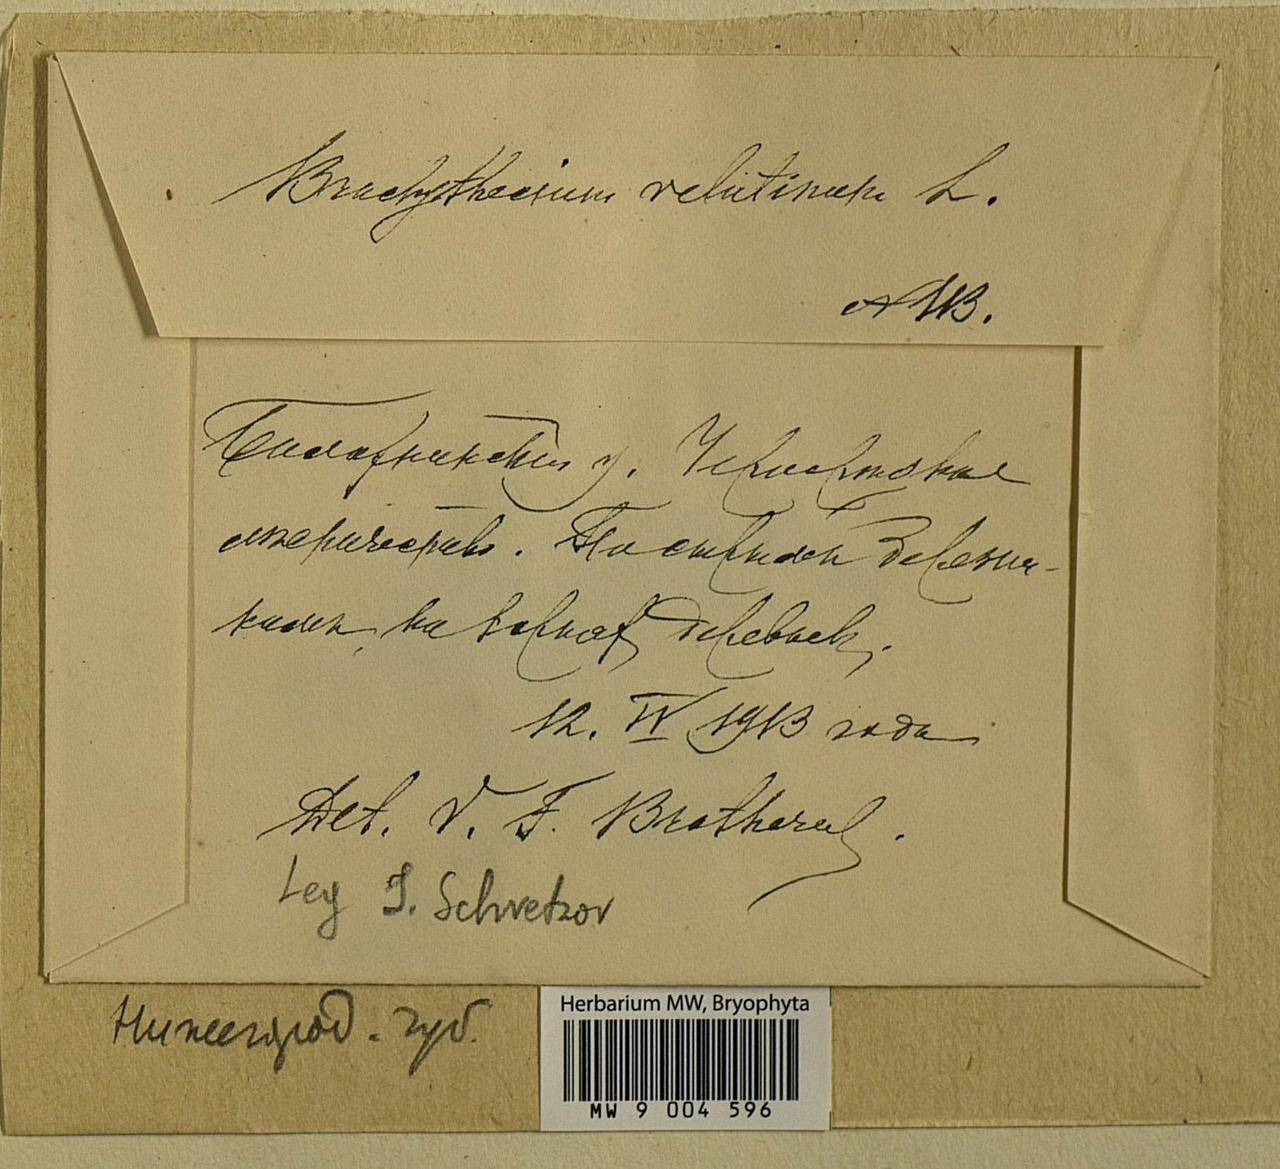 Brachythecium velutinum L.
AWB.
Балахнинский у. Чернораменское
лесничество. По старым березня-
кам, на корнях деревьев.
12. IV 1913 года
Det. V. F. Brotherus.
Leg J. Schvetzov
Нижегород. губ.
Herbarium MW, Bryophyta
MW 9 004 596